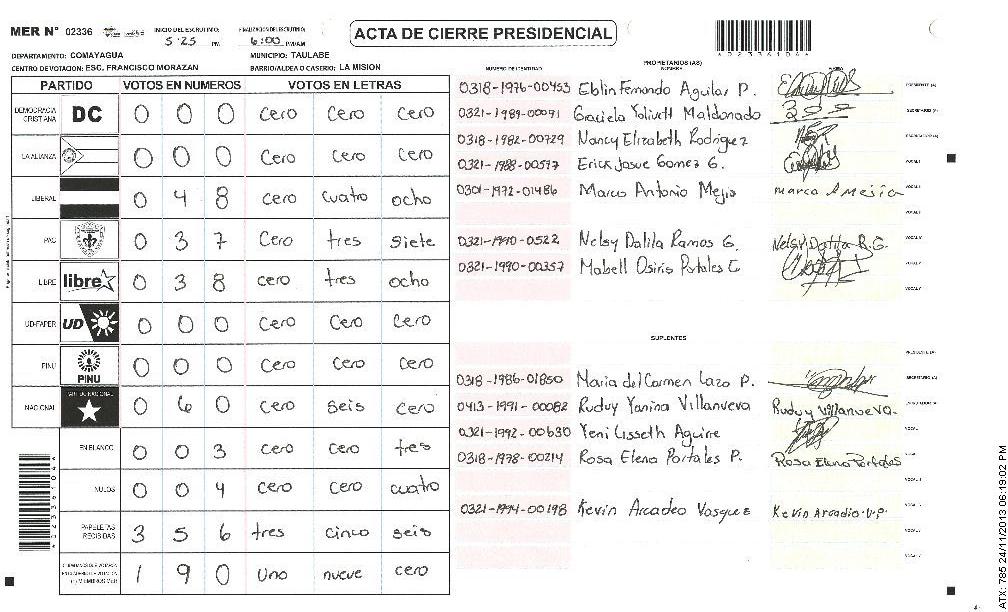 MER N° 02336
INICIO DEL ESCRUTINIO: 5:25 PM
FINALIZACION DEL ESCRUTINIO: 6:00 PM/AM
ACTA DE CIERRE PRESIDENCIAL
A023361044
DEPARTAMENTO: COMAYAGUA MUNICIPIO: TAULABE
CENTRO DE VOTACION: ESC. FRANCISCO MORAZAN BARRIO/ALDEA O CASERIO: LA MISION
PARTIDO VOTOS EN NUMEROS VOTOS EN LETRAS
DEMOCRACIA CRISTIANA DC 0 0 0 cero cero cero
LA ALIANZA 0 0 0 cero cero cero
LIBERAL 0 4 8 cero cuatro ocho
PAC 0 3 7 cero tres siete
LIBRE libre 0 3 8 cero tres ocho
UD-FAPER UD 0 0 0 cero cero cero
PINU PINU 0 0 0 cero cero cero
NACIONAL PARTIDO NACIONAL 0 6 0 cero seis cero
EN BLANCO 0 0 3 cero cero tres
NULOS 0 0 4 cero cero cuatro
PAPELETAS RECIBIDAS 3 5 6 tres cinco seis
MIEMBROS MER 1 9 0 uno nueve cero
PROPIETARIOS (AS)
NUMERO DE IDENTIDAD NOMBRE FIRMA
0318-1976-00453 Eblin Fernando Aguilar P. PRESIDENTE (A)
0321-1989-00091 Graciela Yolivett Maldonado SECRETARIO (A)
0318-1982-00729 Nancy Elizabeth Rodriguez ESCRUTADOR (A)
0321-1988-00597 Erick Josue Gomez G. VOCAL I
0301-1972-01486 Marco Antonio Mejia marco A mejia
0321-1990-0522 Nelsy Dalila Ramos G. Nelsy Dalila R.G.
0321-1990-00357 Mabell Osiris Portales C
SUPLENTES
PRESIDENTE (A)
0318-1986-01850 Maria del Carmen Lazo P. SECRETARIO (A)
0413-1991-00082 Ruduy Yanina Villanueva Ruduy Villanueva.
0321-1992-00630 Yeni Lisseth Aguirre
0318-1978-00214 Rosa Elena Portales P. Rosa Elena Portales
0321-1994-00198 Kevin Arcadeo Vasquez Kevin Arcadio V.P.
ATX: 785 24/11/2013 06:19:02 PM